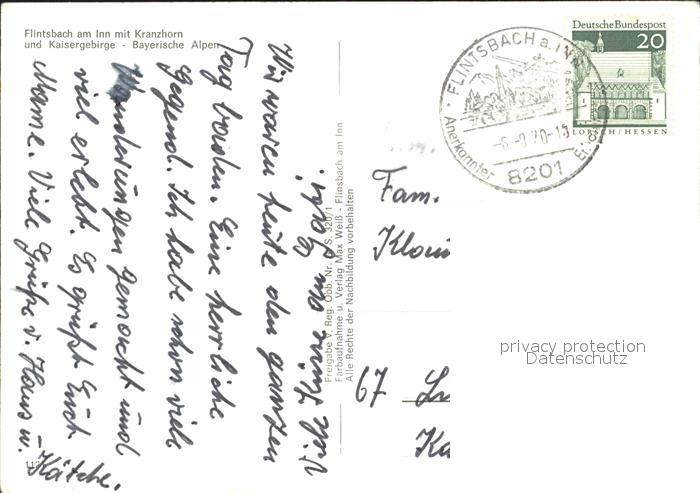 Flintsbach am Inn mit Kranzhorn
und Kaisergebirge - Bayerische Alpen
Wir waren heute den ganzen
Tag baden. Eine herrliche
Gegend. Ich habe schon viele
Wanderungen gemacht und
viel erlebt. Es grüßt Euch
Mame. Viele Grüße v. Hans u.
Kätche.
Freigabe V. Reg. Obb. Nr. S. 320/1
Farbaufnahme u. Verlag Max Weiß - Flinsbach am Inn
Alle Rechte der Nachbildung vorbehalten
FLINTSBACH a. INN
-6.-8.70-15
Anerkannter
8201
Deutsche Bundespost
20
LORSCH / HESSEN
Fam.
67
privacy protection
Datenschutz